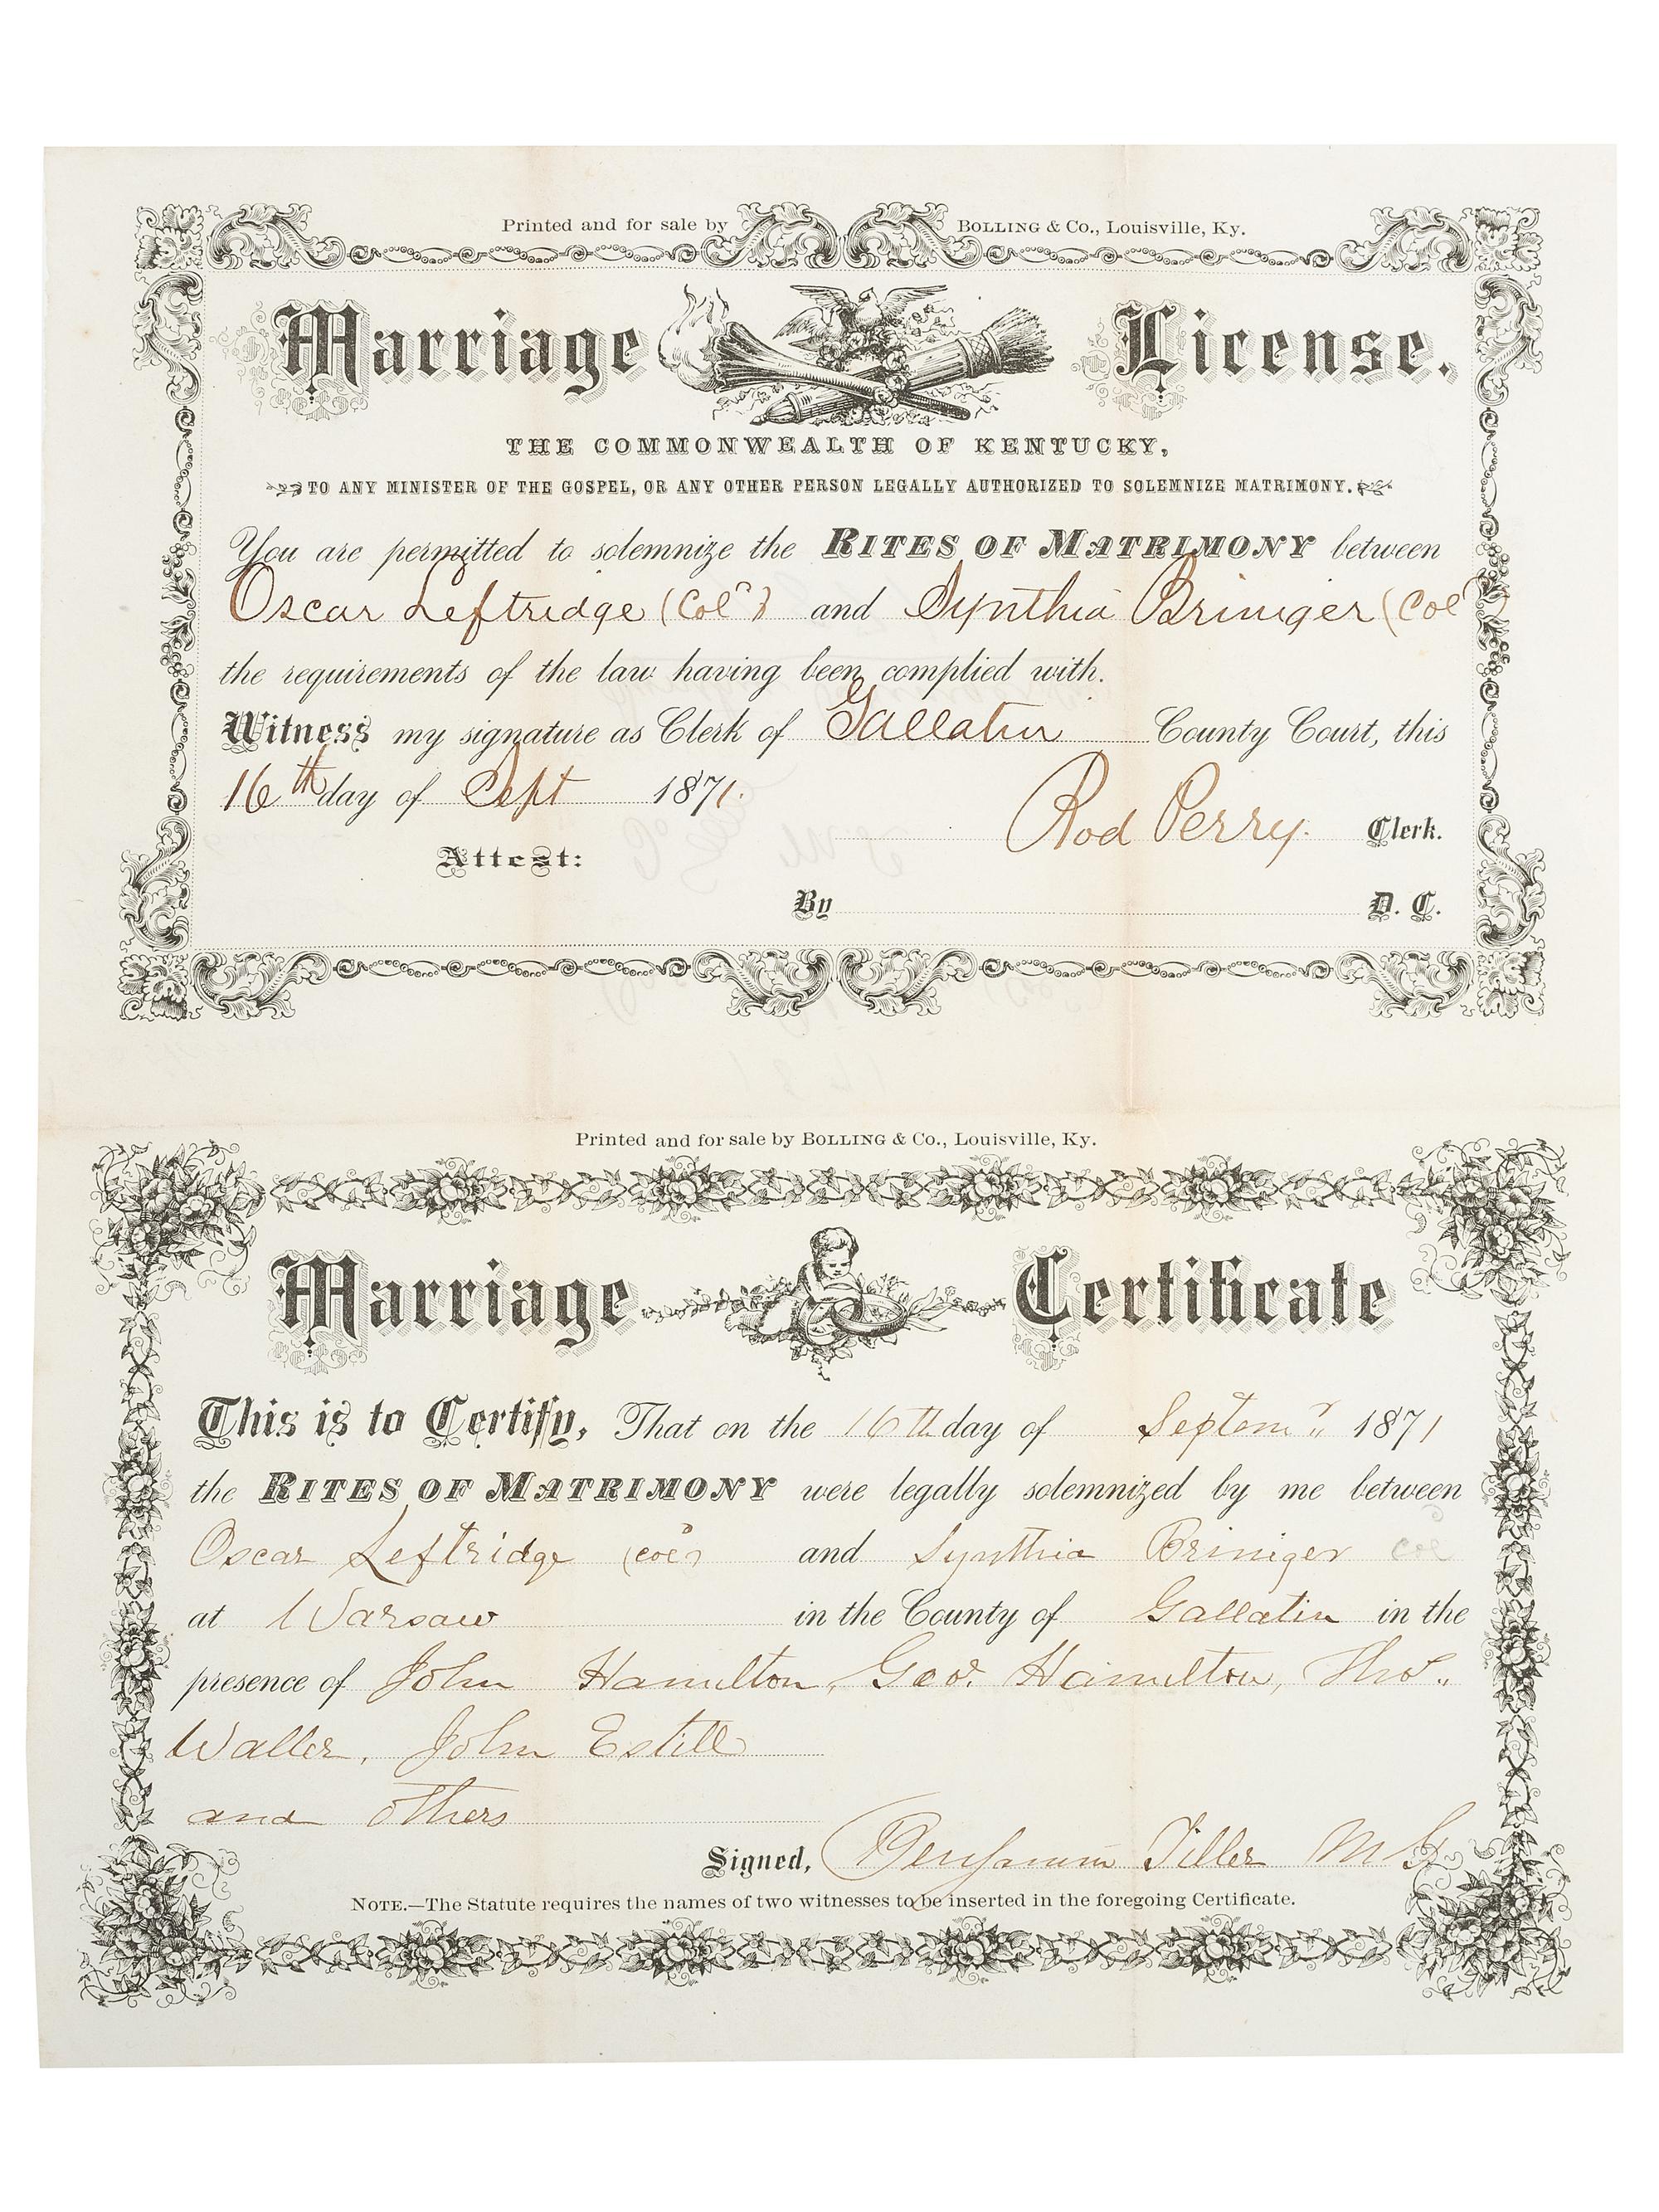 Printed and for sale by BOLLING & Co., Louisville, Ky.
Marriage License.
THE COMMONWEALTH OF KENTUCKY,
TO ANY MINISTER OF THE GOSPEL, OR ANY OTHER PERSON LEGALLY AUTHORIZED TO SOLEMNIZE MATRIMONY.
You are permitted to solemnize the RITES OF MATRIMONY between
Oscar Leftridge (Col^d) and Synthia Briniger (Col^d)
the requirements of the law having been complied with.
Witness my signature as Clerk of Gallatin County Court, this
16th day of Sept 1871.
Rod Perry. Clerk.
Attest:
By D. C.
Printed and for sale by BOLLING & Co., Louisville, Ky.
Marriage Certificate
This is to Certify, That on the 16th day of Septem^r 1871
the RITES OF MATRIMONY were legally solemnized by me between
Oscar Leftridge (col^d) and Synthia Briniger col
at Warsaw in the County of Gallatin in the
presence of John Hamilton, Geo. Hamilton, Tho^s.
Waller, John Estill
and others
Signed, Benjamin Tiller M G
NOTE.—The Statute requires the names of two witnesses to be inserted in the foregoing Certificate.